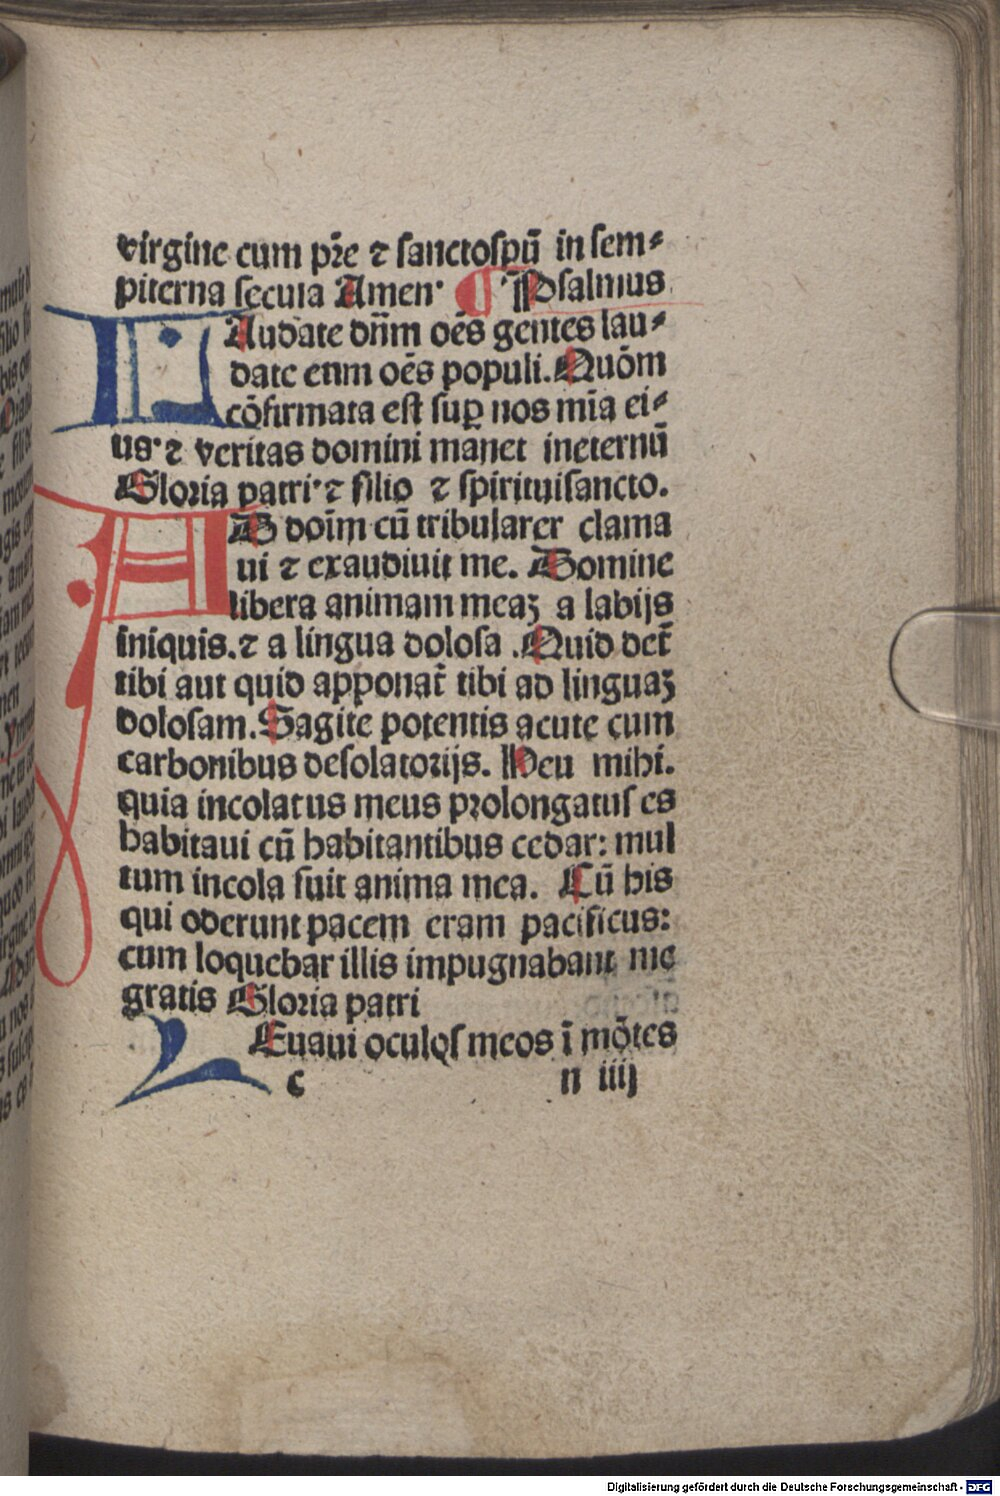 virgine cum p̄re ⁊ sanctospū in sem⸗
piterna secula Amen· ¶ Psalmus
LAudate dn̄m oēs gentes lau⸗
date eum oēs populi. Quōm
cōfirmata est suꝑ nos mīa ei⸗
us· ⁊ veritas domini manet ineternū
Gloria patri· ⁊ filio ⁊ spirituisancto.
AD doīm cū tribularer clama
ui ⁊ exaudiuit me. Domine
libera animam meaꝫ a labijs
iniquis. ⁊ a lingua dolosa. Quid det̄
tibi aut quid apponat̄ tibi ad linguaꝫ
dolosam. Sagite potentis acute cum
carbonibus desolatorijs. Heu mihi.
quia incolatus meus prolongatus es
habitaui cū habitantibus cedar: mul
tum incola fuit anima mea. Cū his
qui oderunt pacem eram pacificus:
cum loquebar illis impugnabant me
gratis Gloria patri
LEuaui oculos meos ī mōtes
c n iiij
Digitalisierung gefördert durch die Deutsche Forschungsgemeinschaft - DFG